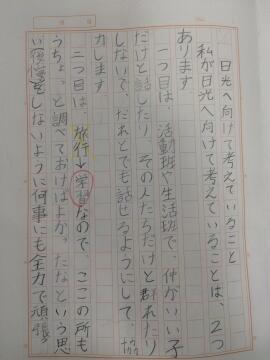 日光へ向けて考えていること
私が日光へ向けて考えていることは、2つ
あります
一つ目は、活動班や生活班で、仲がいい子
だけと話したり、その人たちだけと群れたり
しないで、だれとでも話せるようにして、協
力します
二つ目は、旅行→学習なので、ここの所も
うちょっと調べておけばよかったなという思
いをしないように何事にも全力で頑張